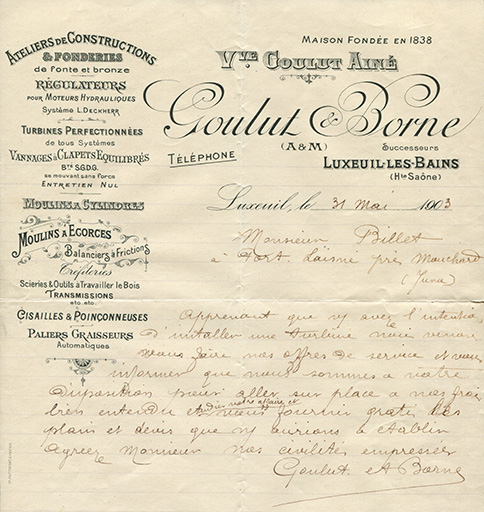 MAISON FONDÉE EN 1838
Vve GOULUT AINÉ
Goulut & Borne
(A & M)
Successeurs
TÉLÉPHONE
LUXEUIL-LES-BAINS
(Hte Saône)
ATELIERS DE CONSTRUCTIONS
& FONDERIES
de fonte et bronze
RÉGULATEURS
POUR MOTEURS HYDRAULIQUES
Système L. DECKHERR
TURBINES PERFECTIONNÉES
de tous Systèmes
VANNAGES à CLAPETS EQUILIBRÉS
Btés S.G.D.G.
se mouvant sans force
ENTRETIEN NUL
MOULINS A CYLINDRES
MOULINS A ECORCES
Balanciers à Frictions
Tréfileries
Scieries & Outils à Travailler le Bois
TRANSMISSIONS
etc. etc.
CISAILLES & POINÇONNEUSES
PALIERS GRAISSEURS
Automatiques
Luxeuil, le 31 Mai 1903
Monsieur Billet
à Port Laisné près Mouchard
(Jura)
Apprenant que vs avez l'intention
d'installer une turbine nous venons
vous faire nos offres de service et vous
informer que nous sommes a votre
disposition pour aller sur place a nos frais
bien entendu et vous fournir gratis les
plans et devis que ns aurions a etablir
Agreez Monsieur nos civilités empressées
Goulut et Borne